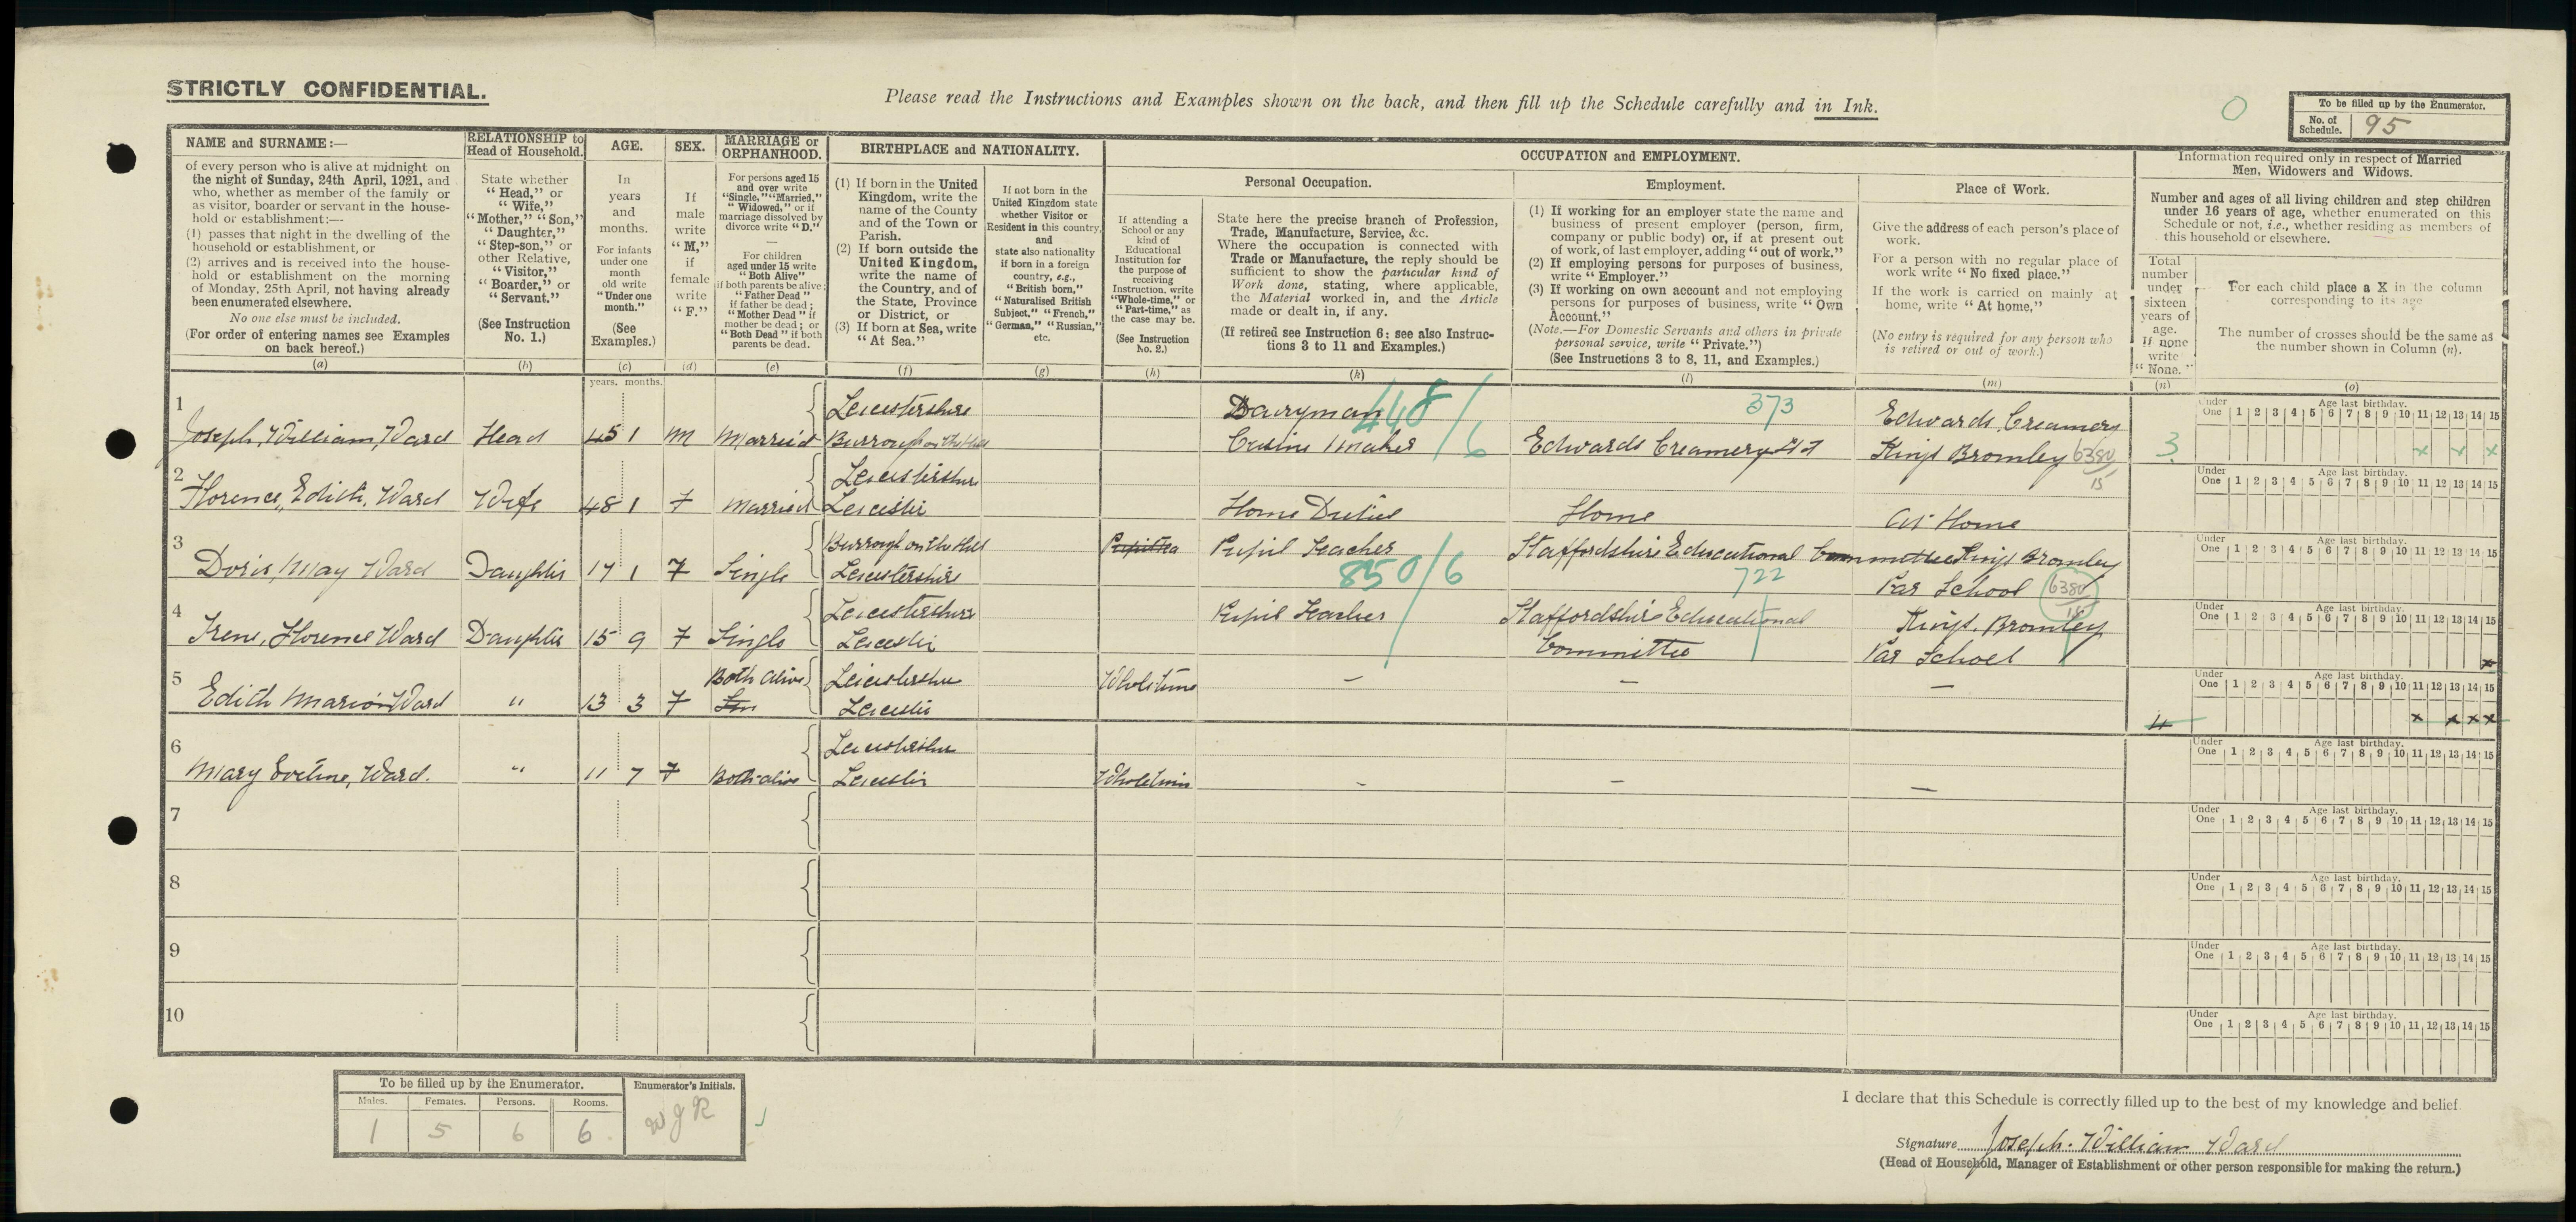 STRICTLY CONFIDENTIAL.
Please read the Instructions and Examples shown on the back, and then fill up the Schedule carefully and in Ink.
0
To be filled up by the Enumerator.
No. of Schedule. 95
NAME and SURNAME:—
of every person who is alive at midnight on
the night of Sunday, 24th April, 1921, and
who, whether as member of the family or
as visitor, boarder or servant in the house-
hold or establishment:—
(1) passes that night in the dwelling of the
household or establishment, or
(2) arrives and is received into the house-
hold or establishment on the morning
of Monday, 25th April, not having already
been enumerated elsewhere.
No one else must be included.
(For order of entering names see Examples
on back hereof.)
(a)
RELATIONSHIP to
Head of Household.
State whether
"Head," or
"Wife,"
"Mother," "Son,"
"Daughter,"
"Step-son," or
other Relative,
"Visitor,"
"Boarder," or
"Servant."
(See Instruction
No. 1.)
(b)
AGE.
In
years
and
months.
For infants
under one
month
old write
"Under one
month."
(See
Examples.)
(c)
years. months.
SEX.
If
male
write
"M,"
if
female
write
"F."
(d)
MARRIAGE or
ORPHANHOOD.
For persons aged 15
and over write
"Single," "Married,"
"Widowed," or if
marriage dissolved by
divorce write "D."
—
For children
aged under 15 write
"Both Alive"
if both parents be alive;
"Father Dead"
if father be dead;
"Mother Dead" if
mother be dead; or
"Both Dead" if both
parents be dead.
(e)
BIRTHPLACE and NATIONALITY.
(1) If born in the United
Kingdom, write the
name of the County
and of the Town or
Parish.
(2) If born outside the
United Kingdom,
write the name of
the Country, and of
the State, Province
or District, or
(3) If born at Sea, write
"At Sea."
(f)
If not born in the
United Kingdom state
whether Visitor or
Resident in this country,
and
state also nationality
if born in a foreign
country, e.g.,
"British born,"
"Naturalised British
Subject," "French,"
"German," "Russian,"
etc.
(g)
OCCUPATION and EMPLOYMENT.
If attending a
School or any
kind of
Educational
Institution for
the purpose of
receiving
Instruction, write
"Whole-time," or
"Part-time," as
the case may be.
(See Instruction
No. 2.)
(h)
Personal Occupation.
State here the precise branch of Profession,
Trade, Manufacture, Service, &c.
Where the occupation is connected with
Trade or Manufacture, the reply should be
sufficient to show the particular kind of
Work done, stating, where applicable,
the Material worked in, and the Article
made or dealt in, if any.
(If retired see Instruction 6; see also Instruc-
tions 3 to 11 and Examples.)
(k)
Employment.
(1) If working for an employer state the name and
business of present employer (person, firm,
company or public body) or, if at present out
of work, of last employer, adding "out of work."
(2) If employing persons for purposes of business,
write "Employer."
(3) If working on own account and not employing
persons for purposes of business, write "Own
Account."
(Note.—For Domestic Servants and others in private
personal service, write "Private.")
(See Instructions 3 to 8, 11, and Examples.)
(l)
Place of Work.
Give the address of each person's place of
work.
For a person with no regular place of
work write "No fixed place."
If the work is carried on mainly at
home, write "At home."
(No entry is required for any person who
is retired or out of work.)
(m)
Information required only in respect of Married
Men, Widowers and Widows.
Number and ages of all living children and step children
under 16 years of age, whether enumerated on this
Schedule or not, i.e., whether residing as members of
this household or elsewhere.
Total
number
under
sixteen
years of
age.
If none
write
"None."
(n)
For each child place a X in the column
corresponding to its age
The number of crosses should be the same as
the number shown in Column (n).
(o)
1
Joseph, William, Ward Head 45 1 M Married
Leicestershire
Burrough on the Hill
Dairyman
448/6
373
Edwards Creamery Ltd
Edwards Creamery
Kings Bromley 6380/15
3
Under One 1 2 3 4 5 6 7 8 9 10 11 12 13 14 15
Age last birthday.
x x x
2
Florence, Edith, Ward Wife 48 1 F Married
Leicestershire
Leicester
Home Duties Home At Home
Under One 1 2 3 4 5 6 7 8 9 10 11 12 13 14 15
Age last birthday.
3
Doris, May Ward Daughter 17 1 F Single
Burrough on the Hill
Leicestershire
Pupil Tea
Pupil Teacher
850/6
Staffordshire Educational Committee
722
Kings Bromley
Par School 6380/15
Under One 1 2 3 4 5 6 7 8 9 10 11 12 13 14 15
Age last birthday.
4
Irene, Florence Ward Daughter 15 9 F Single
Leicestershire
Leicester
Pupil Teacher
Staffordshire Educational
Committee
Kings Bromley
Par School
Under One 1 2 3 4 5 6 7 8 9 10 11 12 13 14 15
Age last birthday.
x
5
Edith Marion Ward " 13 3 F
Both Alive
Leicestershire
Leicester
Wholetime — — —
4
Under One 1 2 3 4 5 6 7 8 9 10 11 12 13 14 15
Age last birthday.
x x x x
6
Mary Eveline, Ward. " 11 7 F Both alive
Leicestershire
Leicester
Wholetime — — —
Under One 1 2 3 4 5 6 7 8 9 10 11 12 13 14 15
Age last birthday.
7
Under One 1 2 3 4 5 6 7 8 9 10 11 12 13 14 15
Age last birthday.
8
Under One 1 2 3 4 5 6 7 8 9 10 11 12 13 14 15
Age last birthday.
9
Under One 1 2 3 4 5 6 7 8 9 10 11 12 13 14 15
Age last birthday.
10
Under One 1 2 3 4 5 6 7 8 9 10 11 12 13 14 15
Age last birthday.
To be filled up by the Enumerator.
Males. Females. Persons. Rooms.
1 5 6 6
Enumerator's Initials.
WJR
I declare that this Schedule is correctly filled up to the best of my knowledge and belief
Signature Joseph. William Ward
(Head of Household, Manager of Establishment or other person responsible for making the return.)